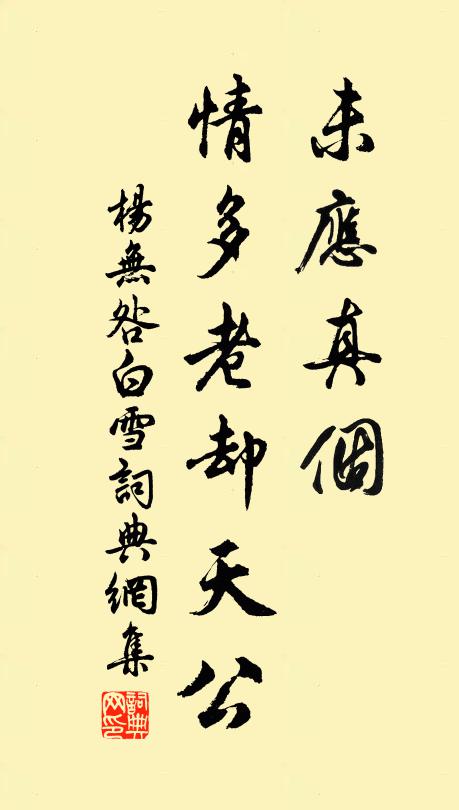 未應真個
情多老却天公
楊無咎白雪詞典網集
詞典網印